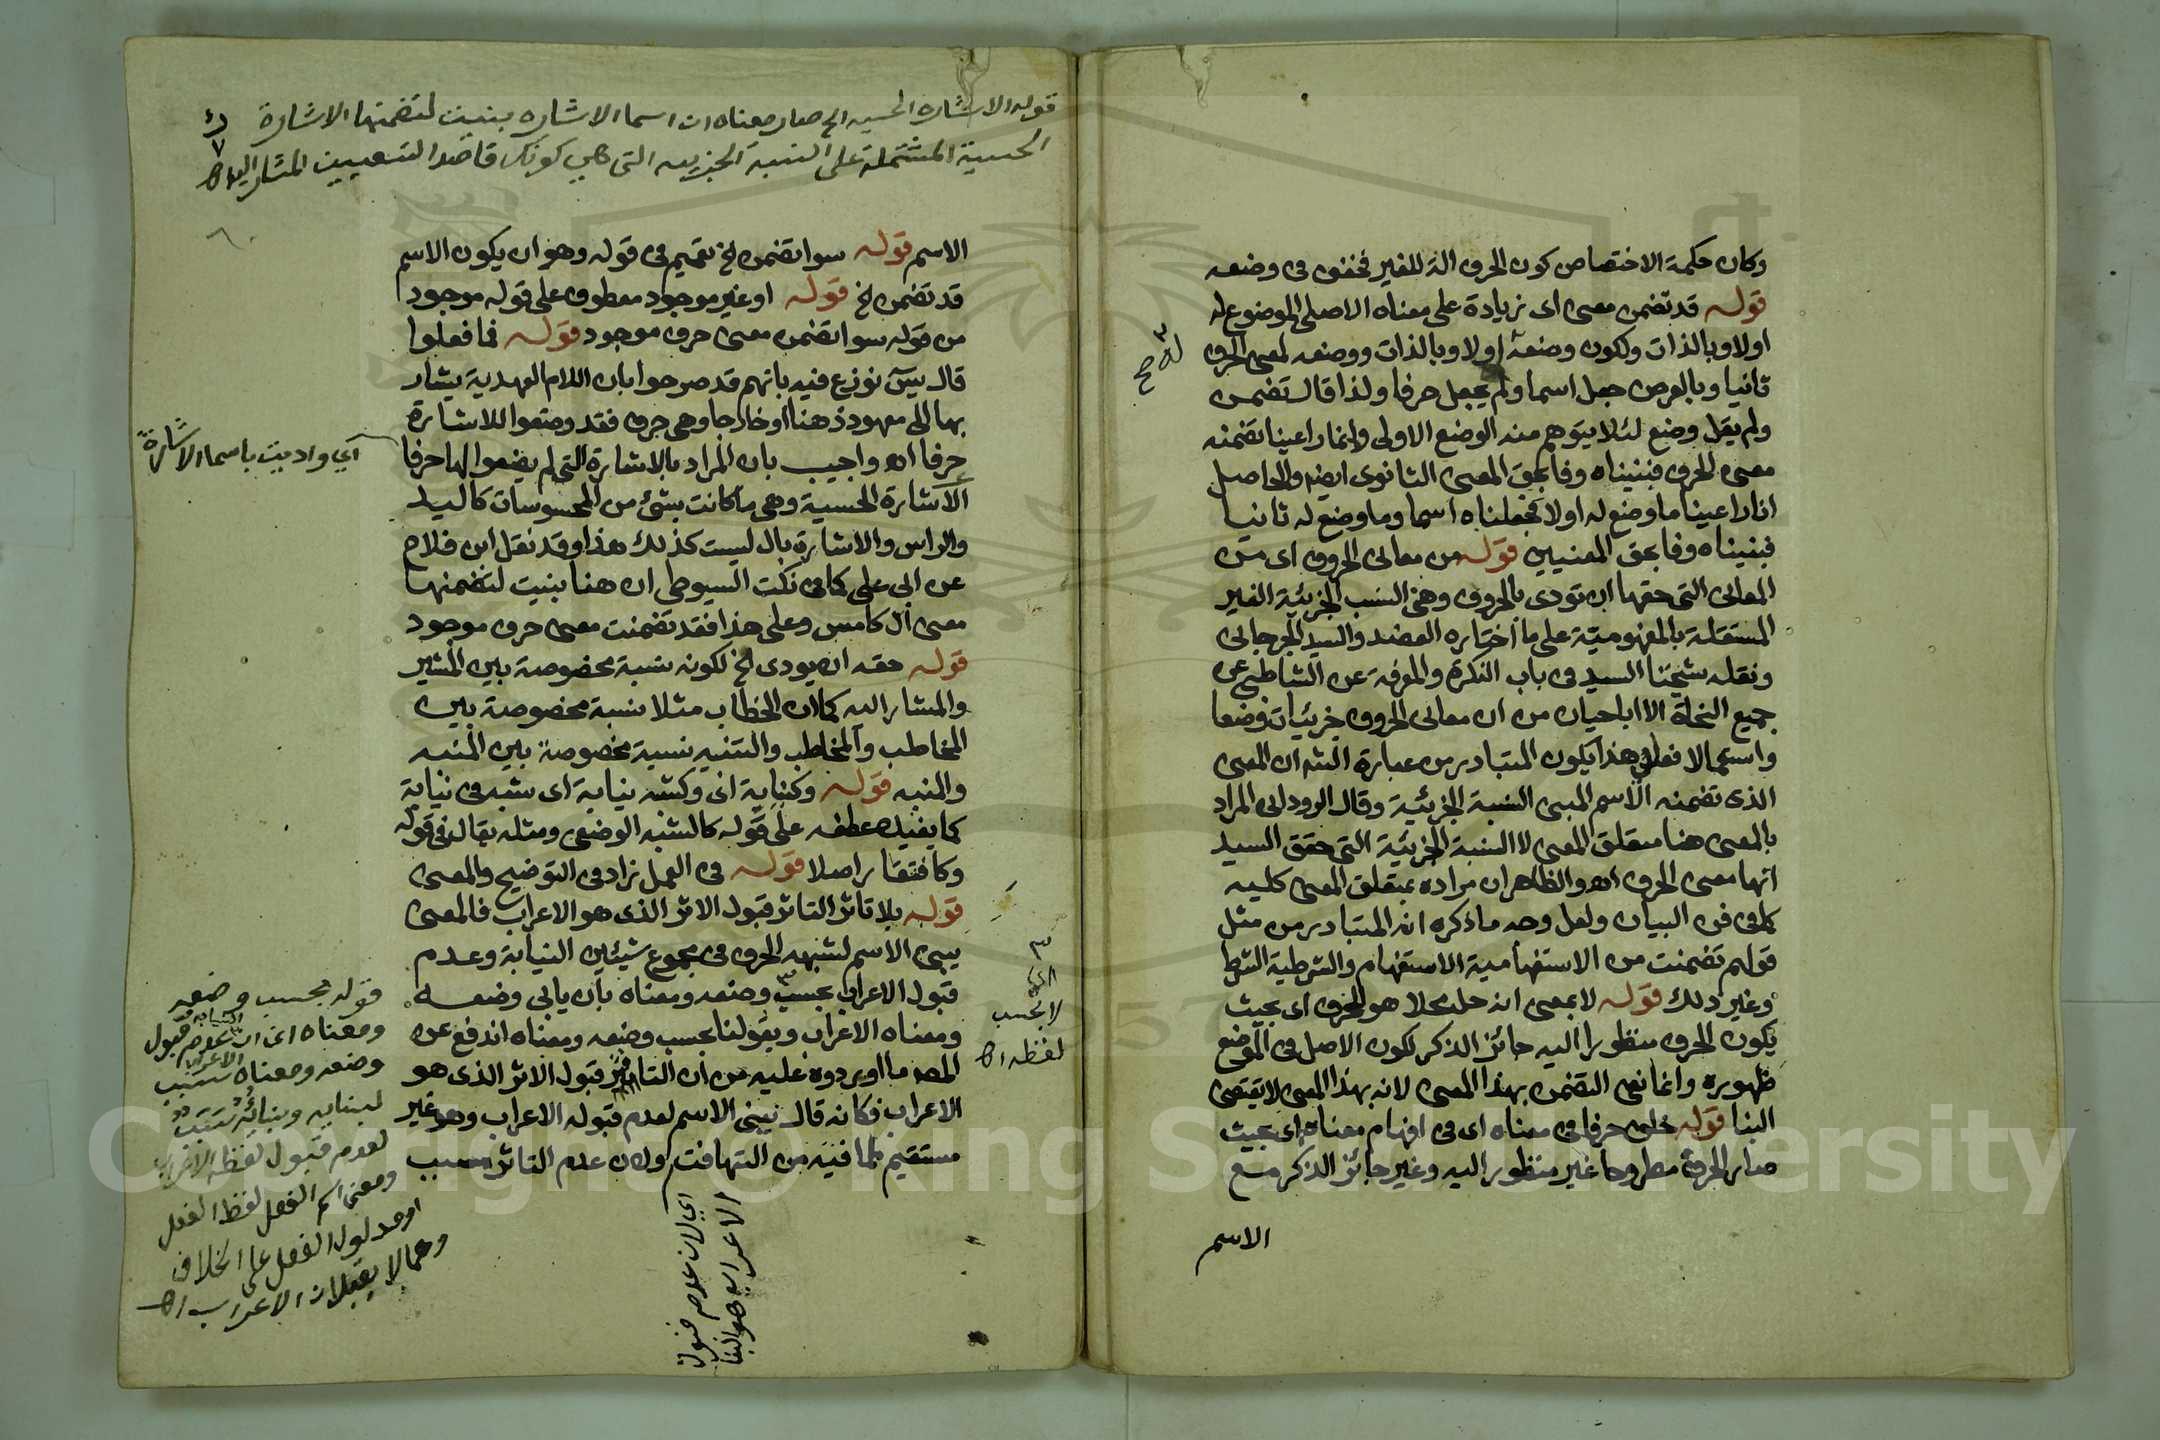 وكان حكمة الاختصاص كون الحرف الة للغير فخفف في وضعه
قوله قد تضمن معنى اى زيادة على معناه الاصلى الموضوع له
اولا وبالذات ولكون وضعه اولا وبالذات ووضعه لمعنى الحرف
ثانيا وبالعرض جعل اسما ولم يجعل حرفا ولذا قال تضمن
ولم يقل وضع لئلا يتوهم منه الوضع الاولى وانما راعينا تضمنه
معنى الحرف فبنيناه وفا بحق المعنى الثانوى ايضا والحاصل
انا راعينا ما وضع له اولا فجعلناه اسما وما وضع له ثانيا
فبنيناه وفا بحق المعنيين قوله من معانى الحروف اى من
المعانى التى حقها ان تودى بالحروف وهى النسب الجزئية الغير
المستقلة بالمفهومية على ما اختاره العضد والسيد الجرجانى
ونقله شيخنا السيد فى باب النكرة والمعرفة عن الشاطبى عن
جميع النحاة الا ابا حيان من ان معانى الحروف جزئيات وضعا
واستعمالا فعلى هذا يكون المتبادر من عبارة الش ان المعنى
الذى تضمنه الاسم المبنى النسبة الجزئية وقال الرودانى المراد
بالمعنى هنا متعلق المعنى لا النسبة الجزئية التى حقق السيد
انها معنى الحرف اه والظاهر ان مراده بمتعلق المعنى كليه
كما فى فن البيان ولعل وجه ما ذكره انه المتبادر من مثل
قولهم تضمنت من الاستفهامية الاستفهام والشرطية الشرط
وغير ذلك قوله لا بمعنى انه حل محلا هو للحرف اى بحيث
يكون الحرف منظورا اليه جائز الذكر لكون الاصل فى الموضع
ظهوره وانما نفى التضمن بهذا المعنى لانه بهذا المعنى لا يقتضى
البنا قوله خلف حرفا فى معناه اى فى افهام معناه اى بحيث
صار الحرف مطروحا غير منظور اليه وغير جائز الذكر مع
الاسم
له صح
قوله الاشاره الحسيه الخ صار معناه ان اسما الاشاره بنيت لتضمنها الاشارة
الحسية المشتملة على النسبة الجزييه التى هي كونك قاصدا لتعيين المشار اليه اه
الاسم قوله سوا تضمن الخ تعميم فى قوله وهو ان يكون الاسم
قد تضمن الخ قوله او غير موجود معطوف على قوله موجود
من قوله سوا تضمن معنى حرف موجود قوله فما فعلوا
قال يس نوزع فيه بانهم قد صرحوا بان اللام العهدية يشار
بها الى معهود ذهنا او خارجا وهى حرف فقد وضعوا للاشارة
حرفا اه واجيب بان المراد بالاشارة التى لم يضعوا لها حرفا
الاشارة الحسية وهى ما كانت بشئ من المحسوسات كاليد
والراس والاشارة بال ليست كذلك هذا وقد نقل ابن فلاح
عن ابى على كما فى نكت السيوطى ان هنا بنيت لتضمنها
معنى ال كامس وعلى هذا فقد تضمنت معنى حرف موجود
قوله حقه ان يودى الخ لكونه نسبة مخصوصة بين المشير
والمشار اليه كما ان الخطاب مثلا نسبة مخصوصة بين
المخاطب والمخاطب والتنبيه نسبة مخصوصة بين المنبه
والمنبه قوله وكنيابة اى وكشبه نيابة اى شبه فى نيابة
كما يفيده عطفه على قوله كالشبه الوضعى ومثله يقال فى قوله
وكافتقار اصلا قوله فى العمل زاد فى التوضيح والمعنى
قوله بلا تاثر التاثر قبول الاثر الذى هو الاعراب فالمعنى
يبنى الاسم لشبهه الحرف فى مجموع شيئين النيابة وعدم
قبول الاعراب بحسب وضعه ومعناه بان يابى وضعه
ومعناه الاعراب وبقولنا بحسب وضعه ومعناه اندفع عن
المصـ ما اورده عليه من ان التاثر قبول الاثر الذى هو
الاعراب فكانه قال يبنى الاسم لعدم قبوله الاعراب وهو غير
مستقيم لما فيه من التهافت ولان عدم التاثر مسبب
آي واديت باسما الاشارة
اي
لا بحسب
لفظه اه
قوله بحسب وضعه
ومعناه اى ان
وضعه ومعناه سبب
لعدم قبول لفظه الاعراب
ومعنى اسم الفعل لفظ الفعل
او مدلول الفعل على الخلاف
وهما لا يقبلان الاعراب اه
اي لان عدم قبول
الاعراب هو البنا